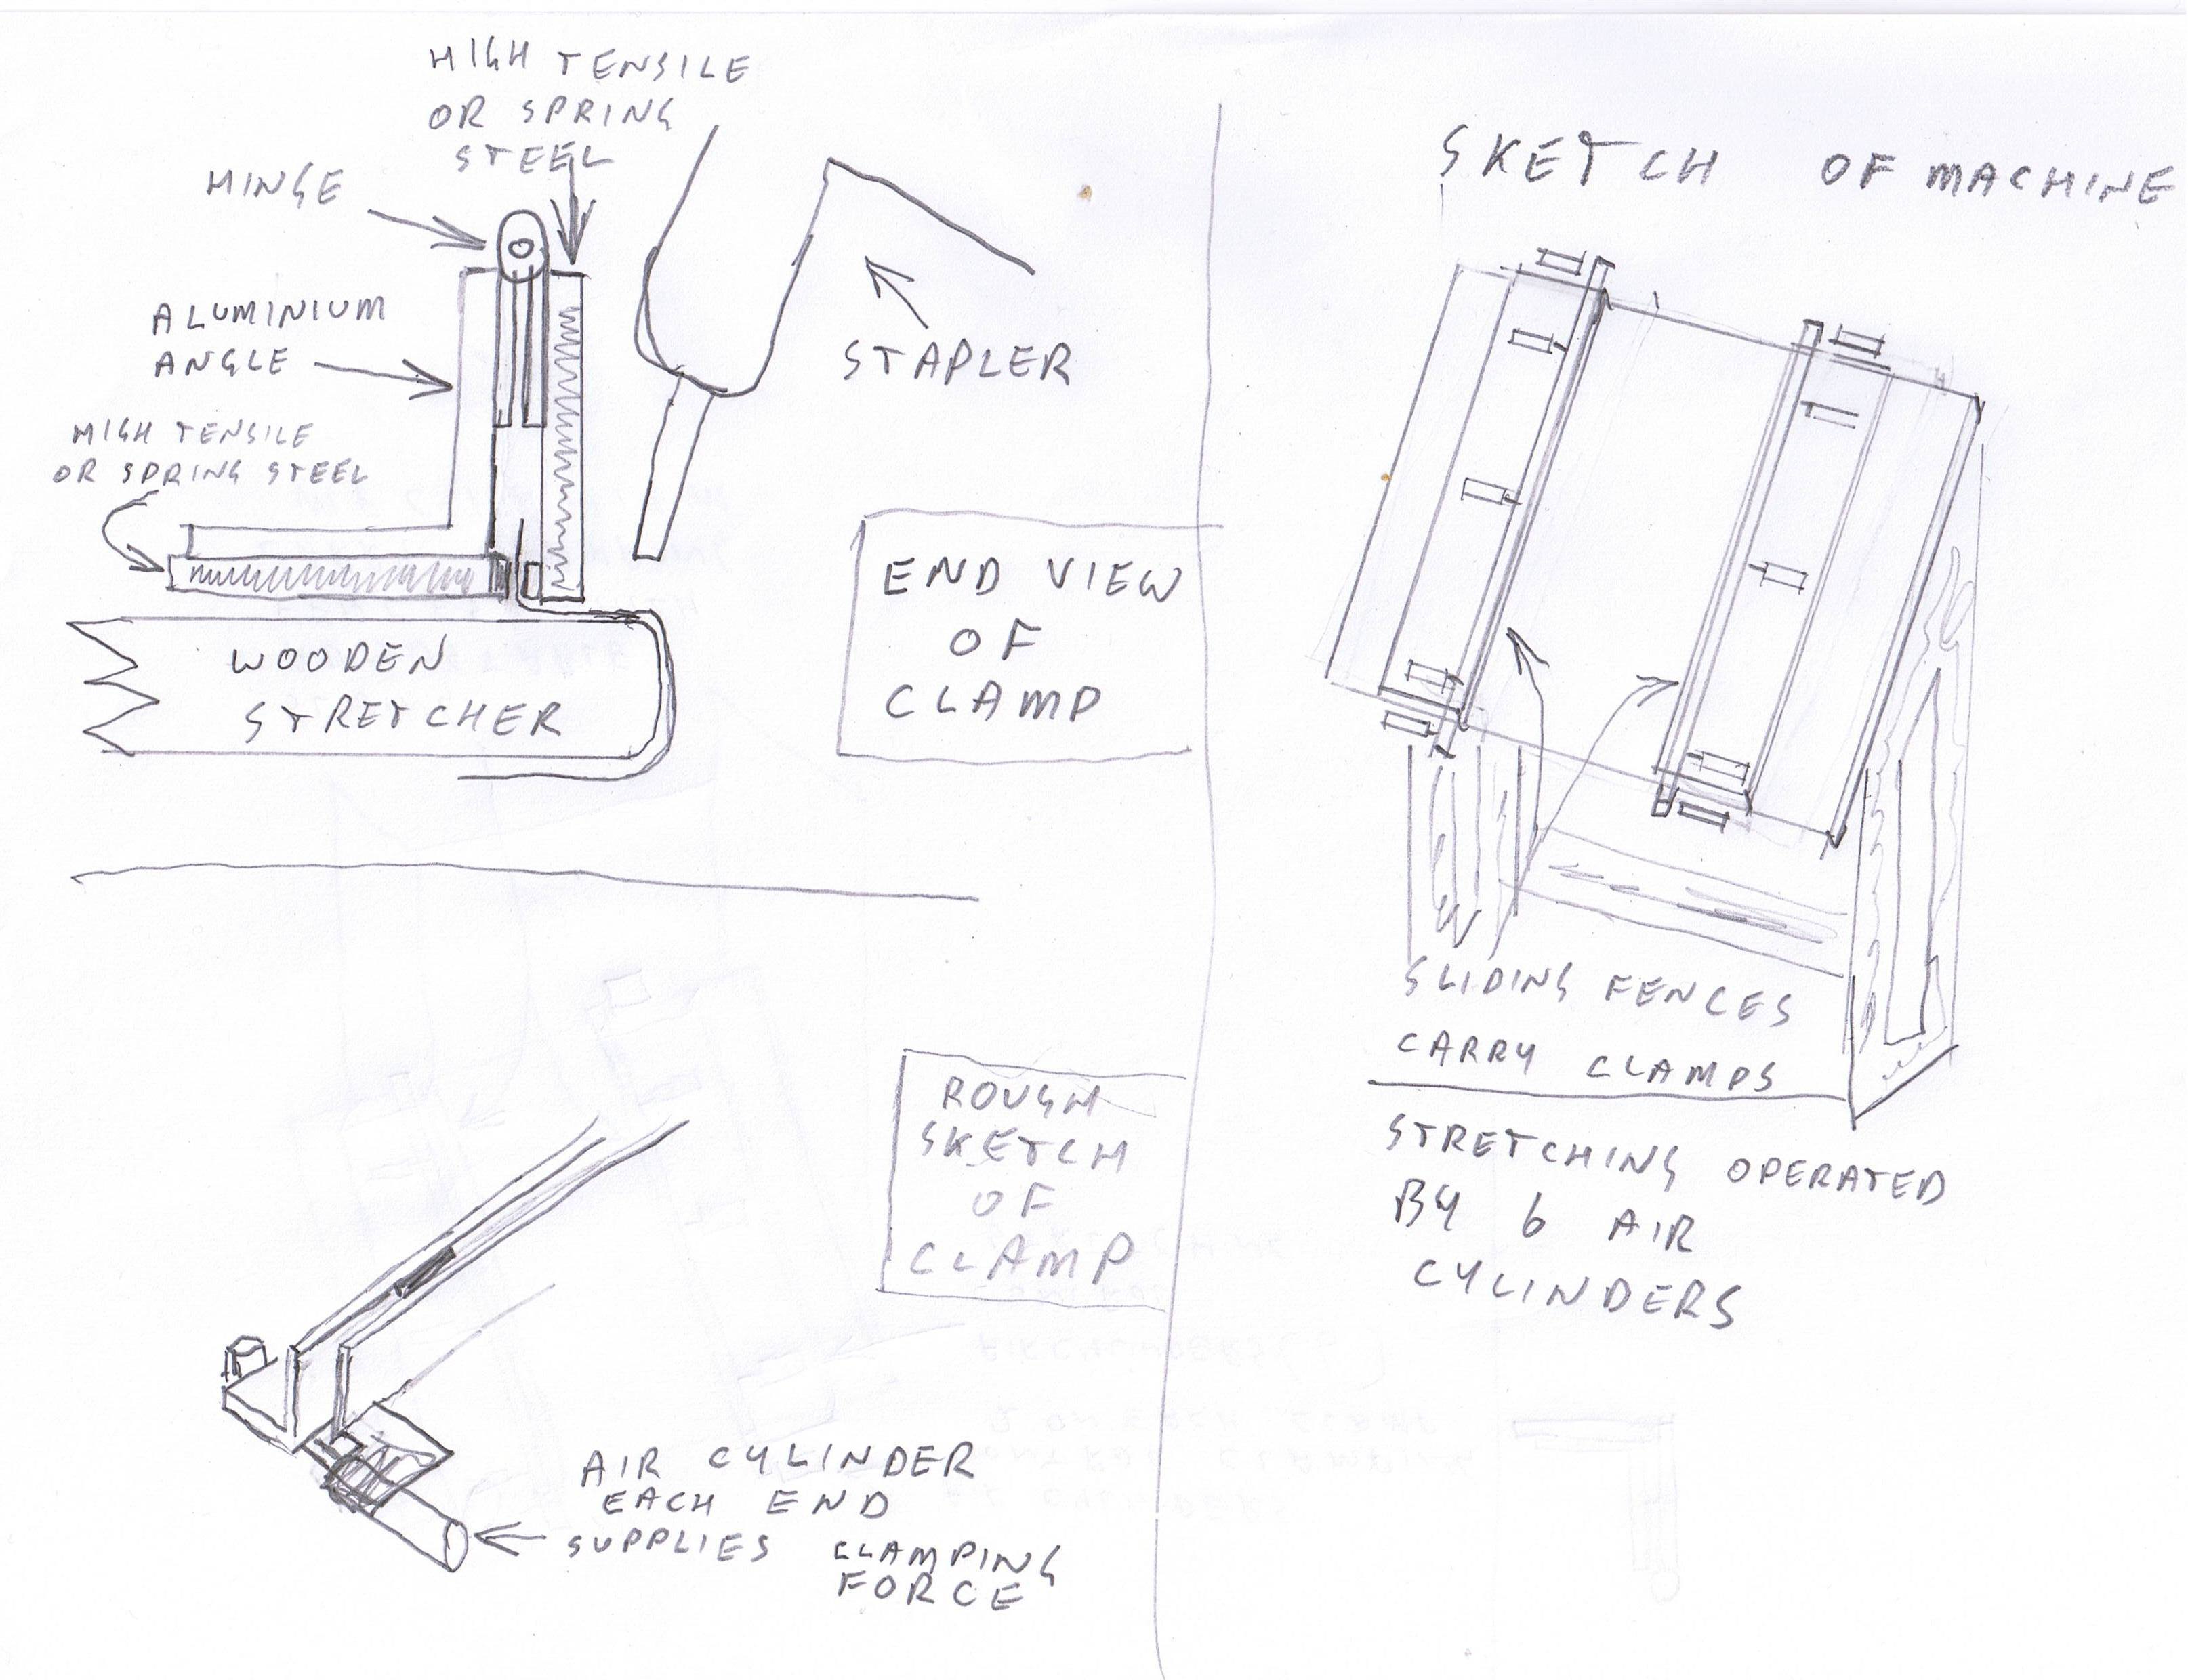 HIGH TENSILE
OR SPRING
STEEL
HINGE
ALUMINIUM
ANGLE
HIGH TENSILE
OR SPRING STEEL
STAPLER
END VIEW
OF
CLAMP
WOODEN
STRETCHER
ROUGH
SKETCH
OF
CLAMP
AIR CYLINDER
EACH END
SUPPLIES CLAMPING
FORCE
SKETCH OF MACHINE
SLIDING FENCES
CARRY CLAMPS
STRETCHING OPERATED
BY 6 AIR
CYLINDERS